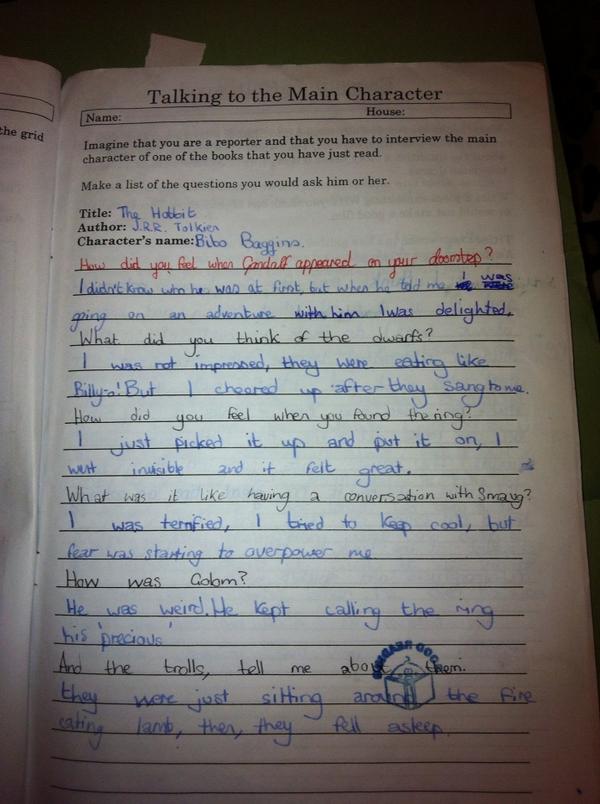 the grid
Talking to the Main Character
Name: House:
Imagine that you are a reporter and that you have to interview the main
character of one of the books that you have just read.
Make a list of the questions you would ask him or her.
Title: The Hobbit
Author: J.R.R. Tolkien
Character's name: Bibo Baggins.
How did you feel when Gandalf appeared on your doorstep?
I didn't know who he was at first, but when he told me I was
going on an adventure with him I was delighted.
What did you think of the dwarfs?
I was not impressed, they were eating like
Billy-o! But I cheered up after they sang to me.
How did you feel when you found the ring?
I just picked it up and put it on, I
went invisible and it felt great.
What was it like having a conversation with Smaug?
I was terrified, I tried to keep cool, but
fear was starting to overpower me
How was Golom?
He was weird. He kept calling the ring
his 'precious'
And the trolls, tell me about them.
they were just sitting around the fire
eating lamb, then, they fell asleep.